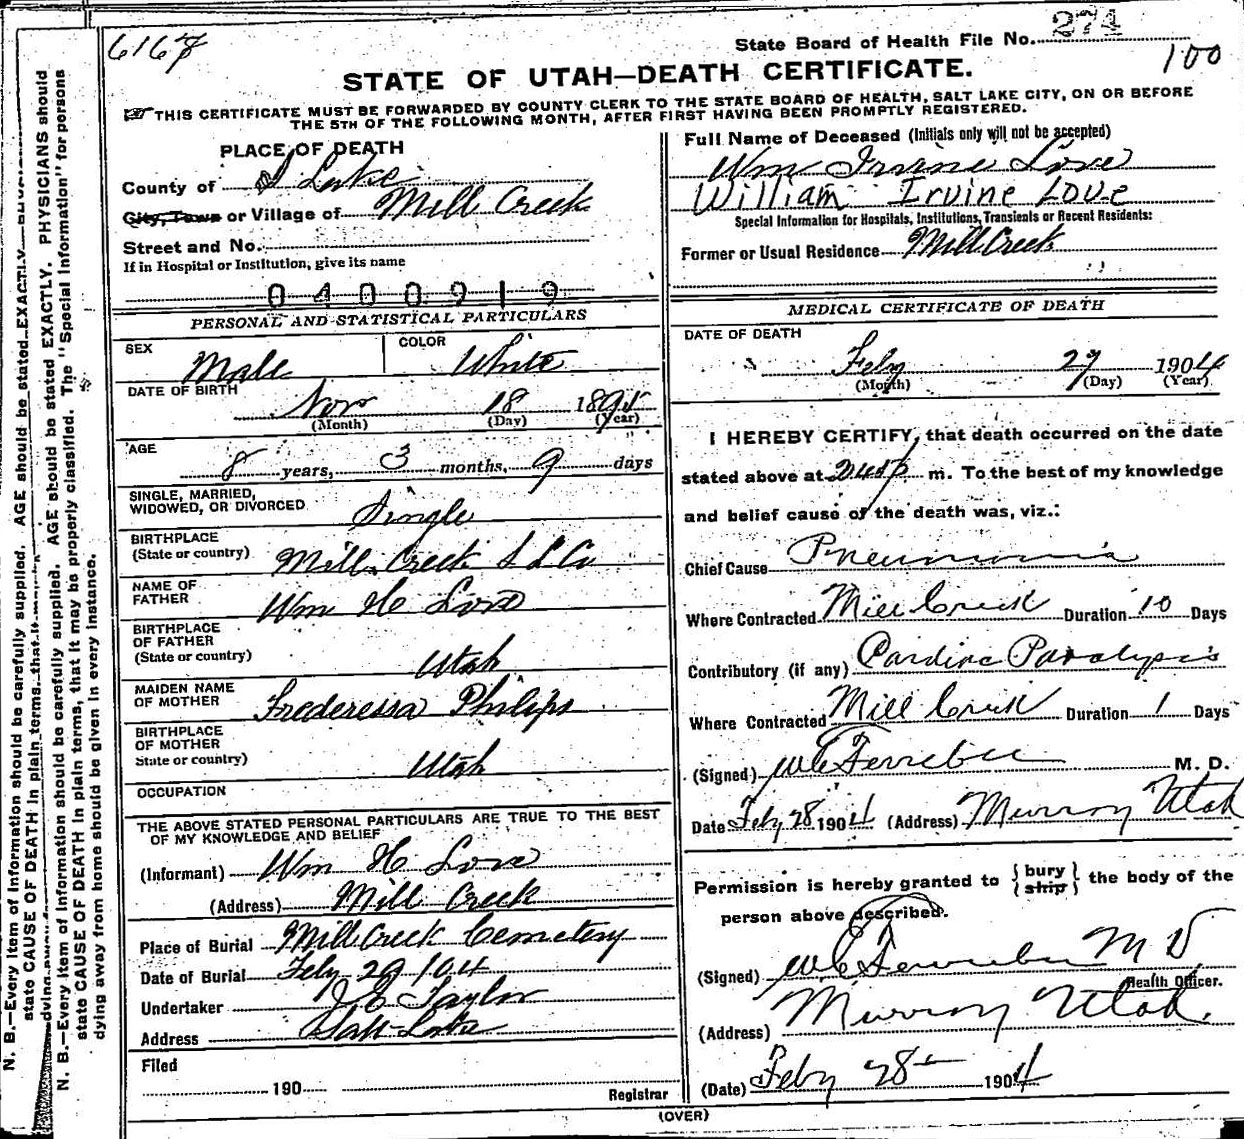 6167
State Board of Health File No. 274
100
STATE OF UTAH—DEATH CERTIFICATE.
THIS CERTIFICATE MUST BE FORWARDED BY COUNTY CLERK TO THE STATE BOARD OF HEALTH, SALT LAKE CITY, ON OR BEFORE
THE 5TH OF THE FOLLOWING MONTH, AFTER FIRST HAVING BEEN PROMPTLY REGISTERED.
PLACE OF DEATH
County of S Lake
City, Town or Village of Mill Creek
Street and No.
If in Hospital or Institution, give its name
0400919
PERSONAL AND STATISTICAL PARTICULARS
SEX Male COLOR White
DATE OF BIRTH
Nov 18 1895
(Month) (Day) (Year)
AGE
8 years, 3 months, 9 days
SINGLE, MARRIED,
WIDOWED, OR DIVORCED Single
BIRTHPLACE
(State or country) Mill Creek S L Co
NAME OF
FATHER Wm H Love
BIRTHPLACE
OF FATHER
(State or country) Utah
MAIDEN NAME
OF MOTHER Frederessa Philips
BIRTHPLACE
OF MOTHER
State or country) Utah
OCCUPATION
THE ABOVE STATED PERSONAL PARTICULARS ARE TRUE TO THE BEST
OF MY KNOWLEDGE AND BELIEF
(Informant) Wm H Love
(Address) Mill Creek
Place of Burial Mill Creek Cemetery
Date of Burial Feby 29 104
Undertaker Taylor
Address Salt Lake
Filed
190
Registrar
Full Name of Deceased (Initials only will not be accepted)
Wm Irvine Love
William Irvine Love
Special Information for Hospitals, Institutions, Transients or Recent Residents:
Former or Usual Residence Mill Creek
MEDICAL CERTIFICATE OF DEATH
DATE OF DEATH
Feby 27 1904
(Month) (Day) (Year)
I HEREBY CERTIFY, that death occurred on the date
stated above at 245 p m. To the best of my knowledge
and belief cause of the death was, viz.:
Chief Cause Pneumonia
Where Contracted Mill Creek Duration 10 Days
Contributory (if any) Cardiac Paralysis
Where Contracted Mill Creek Duration 1 Days
(Signed) W C Ferrebee M. D.
Date Feby 28 1904 (Address) Murray Utah
Permission is hereby granted to {bury
{ship} the body of the
person above described.
(Signed) W C Ferrebee M D
Health Officer.
(Address) Murray Utah.
(Date) Feby 28th 1904
(OVER)
N. B.—Every Item of Information should be carefully supplied. AGE should be stated EXACTLY
state CAUSE OF DEATH in plain terms, that it
N. B.—Every item of Information should be carefully supplied. AGE should be stated EXACTLY. PHYSICIANS should
state CAUSE OF DEATH in plain terms, that it may be properly classified. The "Special Information" for persons
dying away from home should be given in every instance.